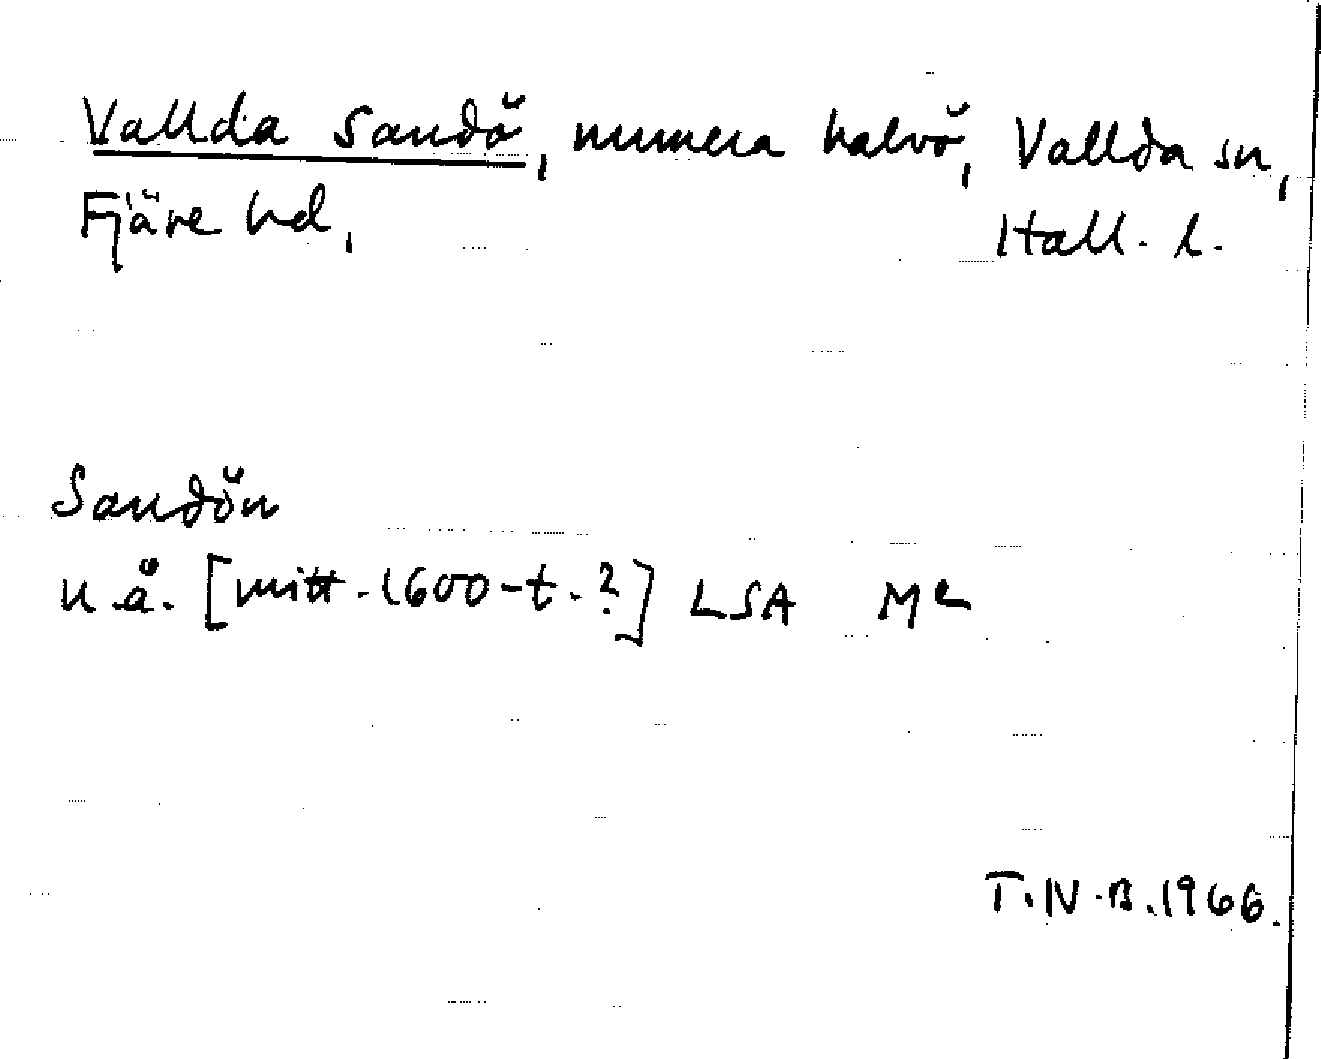 Vallda Sandö, numera halvö, Vallda sn,
Fjäre hd, Hall. l.
Sandön
u.å. [mitt-1600-t.?] LSA
T.N.B. 1966.